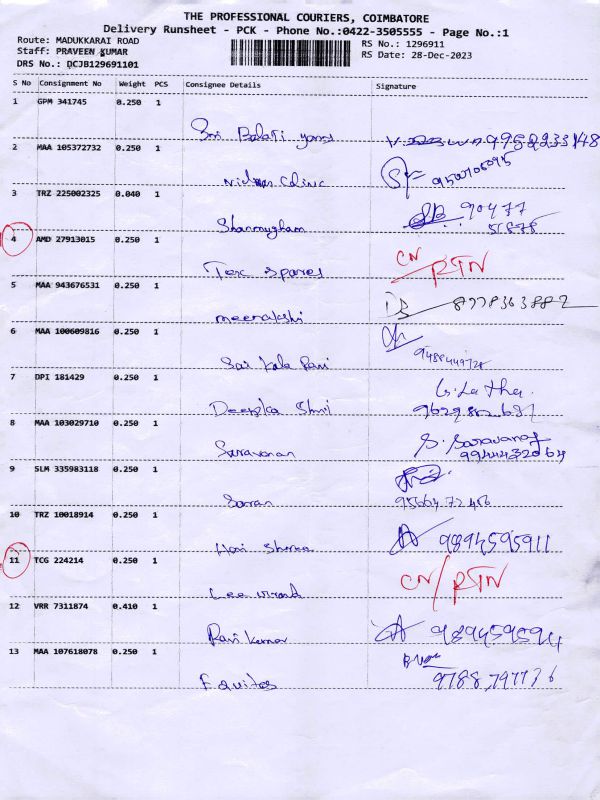 THE PROFESSIONAL COURIERS, COIMBATORE
Delivery Runsheet - PCK - Phone No.:0422-3505555 - Page No.:1
Route: MADUKKARAI ROAD
RS No.: 1296911
Staff: PRAVEEN KUMAR
RS Date: 28-Dec-2023
DRS No.: DCJB129691101
S No Consignment No Weight PCS Consignee Details Signature
1 GPM 341745 0.250 1
Sri Balaji
2 MAA 105372732 0.250 1
3 TRZ 225002325 0.040 1
Shanmugham 90477
51878
4 AMD 27913015 0.250 1
Tex spares CN/RTN
5 MAA 943676531 0.250 1
meenakshi 8778363882
6 MAA 100609816 0.250 1
Sai Kala Rani
7 DPI 181429 0.250 1
G. Latha.
Deepika Shri
8 MAA 103029710 0.250 1
Saravanan S. Saravanan
9944432064
9 SLM 335983118 0.250 1
Saran
10 TRZ 10018914 0.250 1
Hari 9894595911
11 TCG 224214 0.250 1
CN/RTN
12 VRR 7311874 0.410 1
Ravi Kumar 9894595594
13 MAA 107618078 0.250 1
Equitas 9788797736